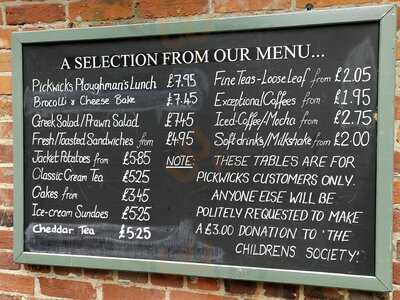 A SELECTION FROM OUR MENU...
Pickwick's Ploughman's Lunch £7.95
Brocolli & Cheese Bake £7.45
Greek Salad/Prawn Salad £7.45
Fresh/Toasted Sandwiches from £4.95
Jacket Potatoes from £5.85
Classic Cream Tea £5.25
Cakes from £3.45
Ice-cream Sundaes £5.25
Cheddar Tea £5.25
Fine Teas-Loose leaf from £2.05
Exceptional Coffees from £1.95
Iced-Coffee/Mocha from £2.75
Soft drinks/Milkshake from £2.00
NOTE: THESE TABLES ARE FOR
PICKWICKS CUSTOMERS ONLY.
ANYONE ELSE WILL BE
POLITELY REQUESTED TO MAKE
A £3.00 DONATION TO 'THE
CHILDRENS SOCIETY'.